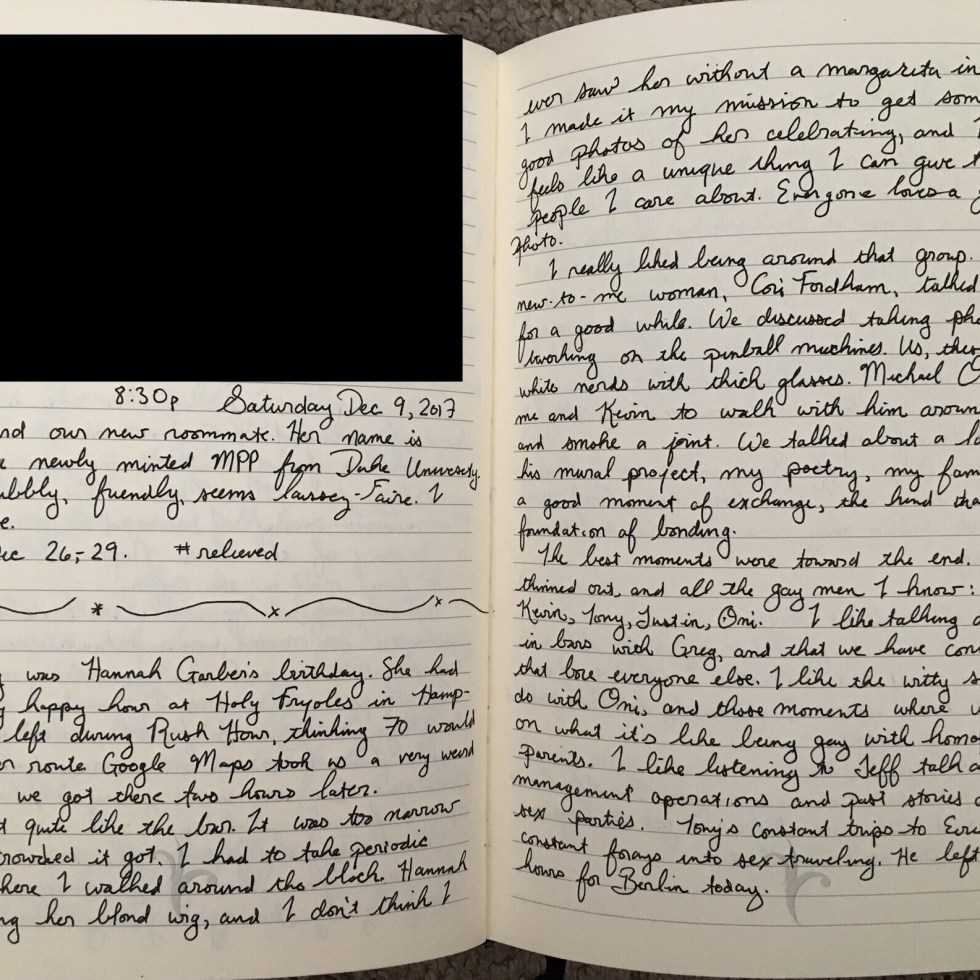 8:30p Saturday Dec 9, 2017
nd our new roommate. Her name is
newly minted MPP from Duke University.
bbly, friendly, seems lassez-Faire. I
e.
ec 26-29. #relieved
was Hannah Garber's birthday. She had
happy hour at Holy Fryoles in Hamp-
left during Rush Hour, thinking 70 would
route Google Maps took us a very weird
we got there two hours later.
t quite like the bar. It was too narrow
crowded it got. I had to take periodic
here I walked around the block. Hannah
ng her blond wig, and I don't think I
ever saw her without a margarita in
I made it my mission to get som
good photos of her celebrating, and
feels like a unique thing I can give t
people I care about. Everyone loves a g
photo.
I really liked being around that group.
new-to-me woman, Cori Fordham, talked
for a good while. We discussed taking pho
twerking on the pinball machines. Us, thes
white nerds with thick glasses. Michael O
me and Kevin to walk with him aroun
and smoke a joint. We talked about a lo
his mural project, my poetry, my fam
a good moment of exchange, the kind tha
foundation of bonding.
The best moments were toward the end.
thinned out, and all the gay men I know:
Kevin, Tony, Justin, Oni. I like talking
in bars with Greg, and that we have con
that bore everyone else. I like the witty s
do with Oni, and those moments where w
on what it's like being gay with homo
parents. I like listening to Jeff talk a
management operations and past stories
sex parties. Tony's constant trips to Euro
constant forays into sex traveling. He left
hours for Berlin today.